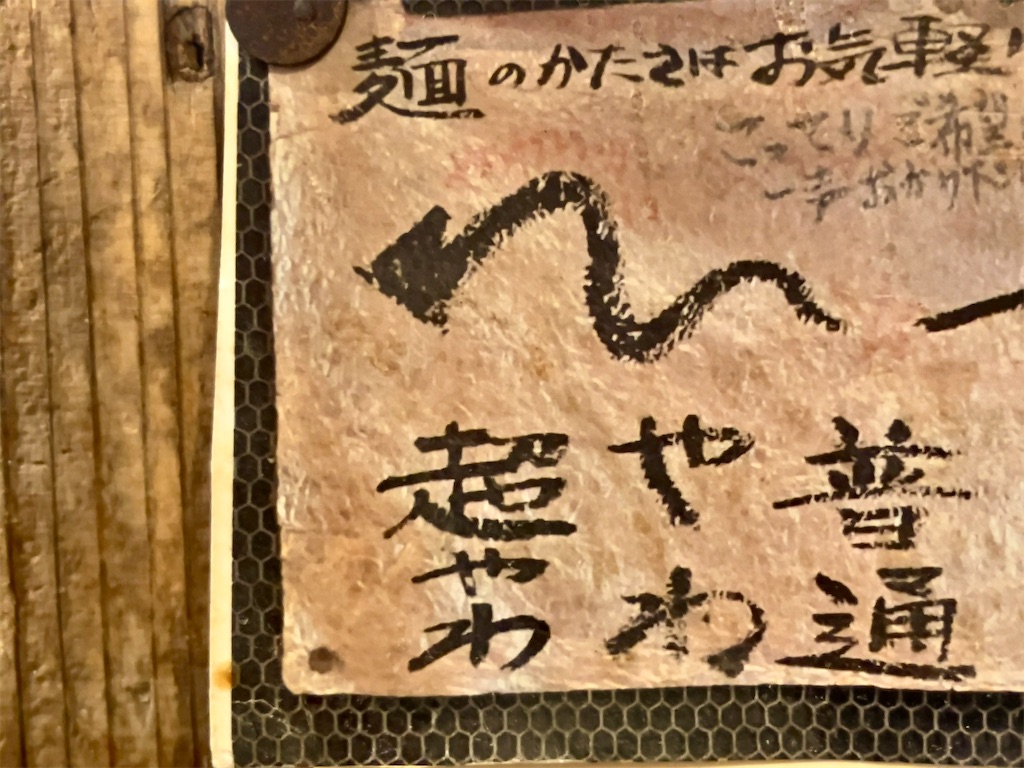 麺のかたさはお気軽に
こってりご希望
一声おかけ下
普通
やわ
超やわ